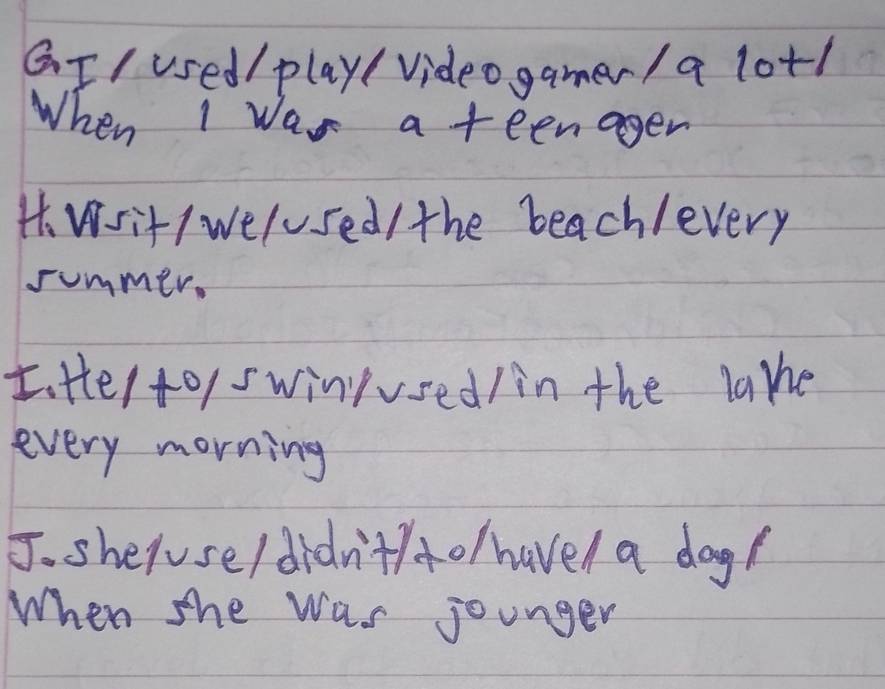 G. I / used / play / videogames / a lot /
When I was a teenager
H. Visit / we / used / the beach / every
summer.
I. He / to / swin / used / in the lake
every morning
J. she / use / didn't / to / have / a dog /
When she was jounger